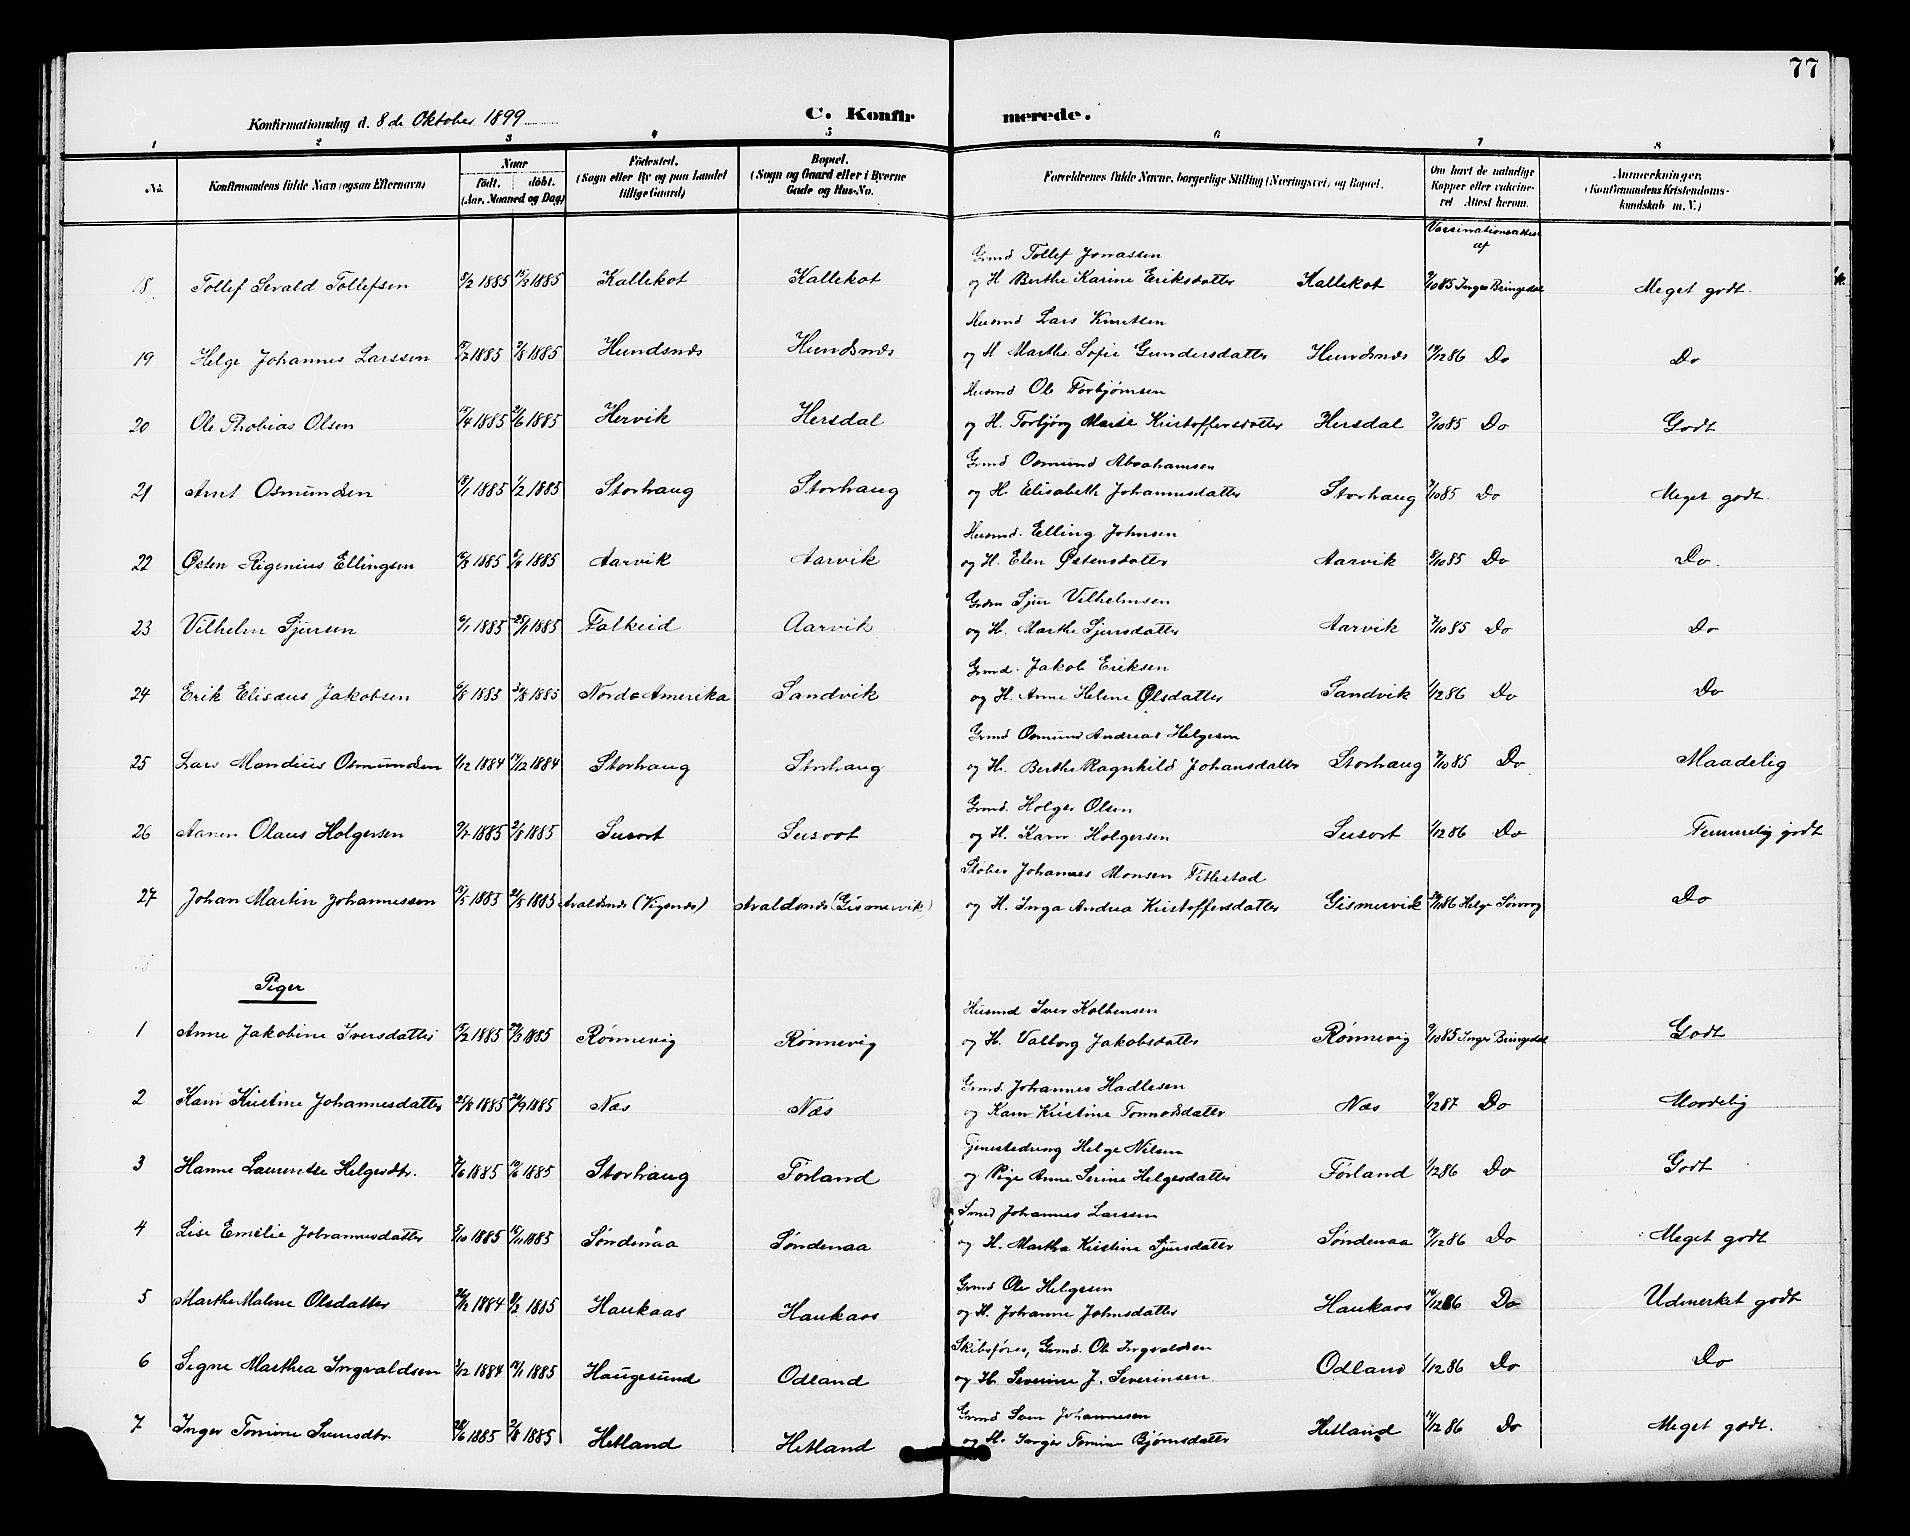 77
Konfirmationsdag d. 8de Oktober 1899
C. Konfir merede.
1 2 3 4 5 6 7 8
No. Konfirmandens fulde Navn (ogsaa Efternavn) Naar født. døbt. (Aar, Maaned og Dag) Fødested. (Sogn eller By og paa Landet tillige Gaard) Bopæl. (Sogn og Gaard eller i Byerne Gade og Hus-No. Forældrenes fulde Navne, borgerlige Stilling (Næringsvei) og Bopæl. Om havt de naturlige Kopper eller vaccineret Attest herom. Anmerkninger. (Konfirmandens Kristendomskundskab m. V.)
Vaccinationsattest af
Grmd Tollef Jonassen
18 Tollef Sevald Tollefsen 8/2 1885 15/3 1885 Kallekot Kallekot og H Berthe Karine Eriksdatter Kallekot 9/10 85 Inger Bringedal Meget godt.
Husmd Lars Knutsen
19 Helge Johannes Larssen 1885 2/8 1885 Hundsnæs Hundsnæs og H Marthe Sofie Gundersdatter Hundsnæs 14/12 86 Do Do
Husmd Ole Torbjørnsen
20 Ole Thobias Olsen 1885 1885 Hervik Hersdal og H. Torbjørg Marie Kristoffersdatter Hersdal 9/10 85 Do Godt
Grmd Osmund Abrahamsen
21 Arnt Osmundsen 1885 1/2 1885 Storhaug Storhaug og H. Elisabeth Johannesdatter Storhaug 9/10 85 Do Meget godt.
Husmd. Elling Johnsen
22 Østen Rigenius Ellingsen 1885 1885 Aarvik Aarvik og H. Elen Østensdatter Aarvik 8/10 85 Do Do.
Grdm Sjur Vilhelmsen
23 Vilhelm Sjursen 6/1 1885 25/1 1885 Falkeid Aarvik og H. Marthe Sjursdatter Aarvik 7/10 85 Do Do
Grmd. Jakob Eriksen
24 Erik Elisæus Jakobsen 6/8 1885 1885 Nord-Amerika Sandvik og H. Anne Helene Olsdatter Sandvik 1/12 86 Do Do
Grmd Osmund Andreas Helgesen
25 Lars Mandius Osmundsen 1/12 1884 14/12 1884 Storhaug Storhaug og H. Berthe Ragnhild Johansdatter Storhaug 9/10 85 Do Maadelig
Grmd. Holger Olsen
26 Aanen Olaus Holgersen 9/7 1885 2/8 1885 Susort Susort og H. Kari Holgersen Susort 1/12 86 Do Temmelig godt
Støber Johannes Monsen Titlestad
27 Johan Martin Johannessen 1885 1885 Avaldsnæs (Vigsnæs) Avaldsnæs (Gismervik) og H. Inga Andrea Kristoffersdatter Gismervik 86 Helge Sørvaag Do
Piger
Husmd Iver Kolbensen
1 Anne Jakobine Iversdatter 1885 1885 Rønnevig Rønnevig og H. Valborg Jakobsdatter Rønnevig 9/10 85 Inger Bringedal Godt
Grmd. Johannes Hadlesen
2 Kari Kristine Johannesdatter 25/8 1885 20/9 1885 Næs Næs og Kari Kristine Tormodsdatter Næs 9/12 87 Do Maadelig
Tjenestedreng Helge Nilsen
3 Hanne Laurentse Helgesdtr. 1885 1885 Storhaug Førland og Pige Anne Serine Helgesdatter Førland 1/12 86 Do Godt
Smed Johannes Larssen
4 Lise Emelie Johannesdatter 5/10 1885 15/11 1885 Søndenaa Søndenaa og H. Martha Kristine Sjursdatter Søndenaa 14/12 86 Do Meget godt
Grmd Ole Helgesen
5 Marthe Malene Olsdatter 1884 8/2 1885 Haukaas Haukaas og H. Johanne Johnsdatter Haukaas 14/12 86 Do Udmerket godt
Skibsfører, Grmd. Ole Ingvaldsen
6 Signe Marthea Ingvaldsen 3/12 1884 1885 Haugesund Odland og H. Severine J. Severinsen Odland 1/12 86 Do Do
Grmd Sven Johannesen
7 Inger Tomine Svensdtr. 1885 2/8 1885 Hetland Hetland og H. Inger Tomine Bjørnsdatter Hetland 14/12 86 Do Meget godt.